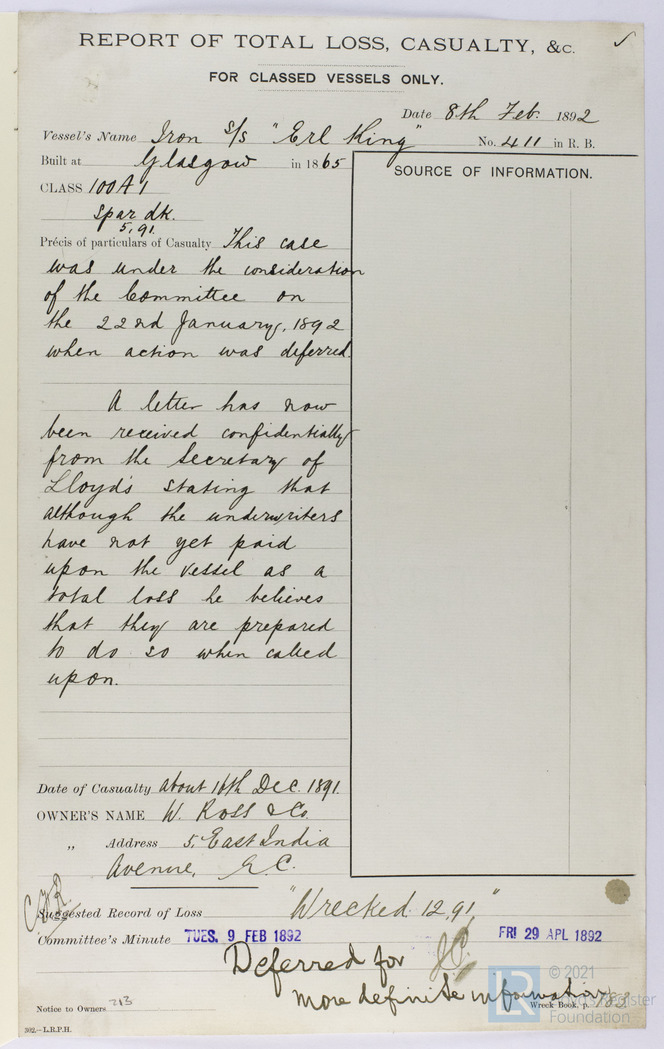 REPORT OF TOTAL LOSS, CASUALTY, &c.
FOR CLASSED VESSELS ONLY.
Date 8th Feb. 1892
Vessel's Name Iron s/s "Erl King" No. 411 in R. B.
Built at Glasgow in 1865
SOURCE OF INFORMATION.
CLASS 100A1
Spar dk.
5,91.
Précis of particulars of Casualty This case
was under the consideration
of the Committee on
the 22nd January, 1892
when action was deferred.
A letter has now
been received confidentially
from the Secretary of
Lloyd's stating that
although the underwriters
have not yet paid
upon the vessel as a
total loss he believes
that they are prepared
to do so when called
upon.
Date of Casualty about 16th Dec. 1891.
OWNER'S NAME W. Ross & Co.
„ Address 5, East India
Avenue, E.C.
Suggested Record of Loss "Wrecked 12,91"
Committee's Minute TUES. 9 FEB 1892 FRI 29 APL 1892
Deferred for
more definite information
Notice to Owners 213
Wreck Book, p.
302.—L.R.P.H.
LR © 2021
Lloyd's Register
Foundation